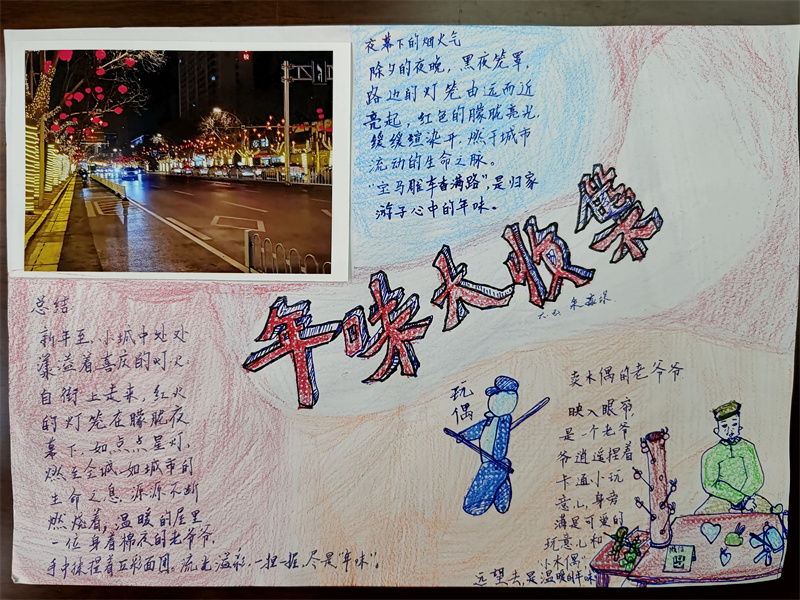 夜幕下的烟火气
除夕的夜晚，黑夜笼罩，
路边的灯笼由远而近
亮起，红色的朦胧亮光，
缓缓渲染开，燃于城市
流动的生命之脉。
"宝马雕车香满路"，是归家
游子心中的年味。
年味大收集
总结
新年至，小城中处处
洋溢着喜庆的灯火
自街上走来，红火
的灯笼在朦胧夜
幕下，如点点星灯，
燃至全城，如城市的
生命之息，源源不断
燃烧着，温暖的屋里
一位身着棉衣的老爷爷，
手中揉捏着五彩面团。流光溢彩，一捏一握，尽是"年味"。
玩
偶
卖木偶的老爷爷
映入眼帘，
是一个老爷
爷逍遥捏着
卡通小玩
意儿，身旁
满是可爱的
玩意儿和
"小木偶"
远望去，是温暖的年味
微信